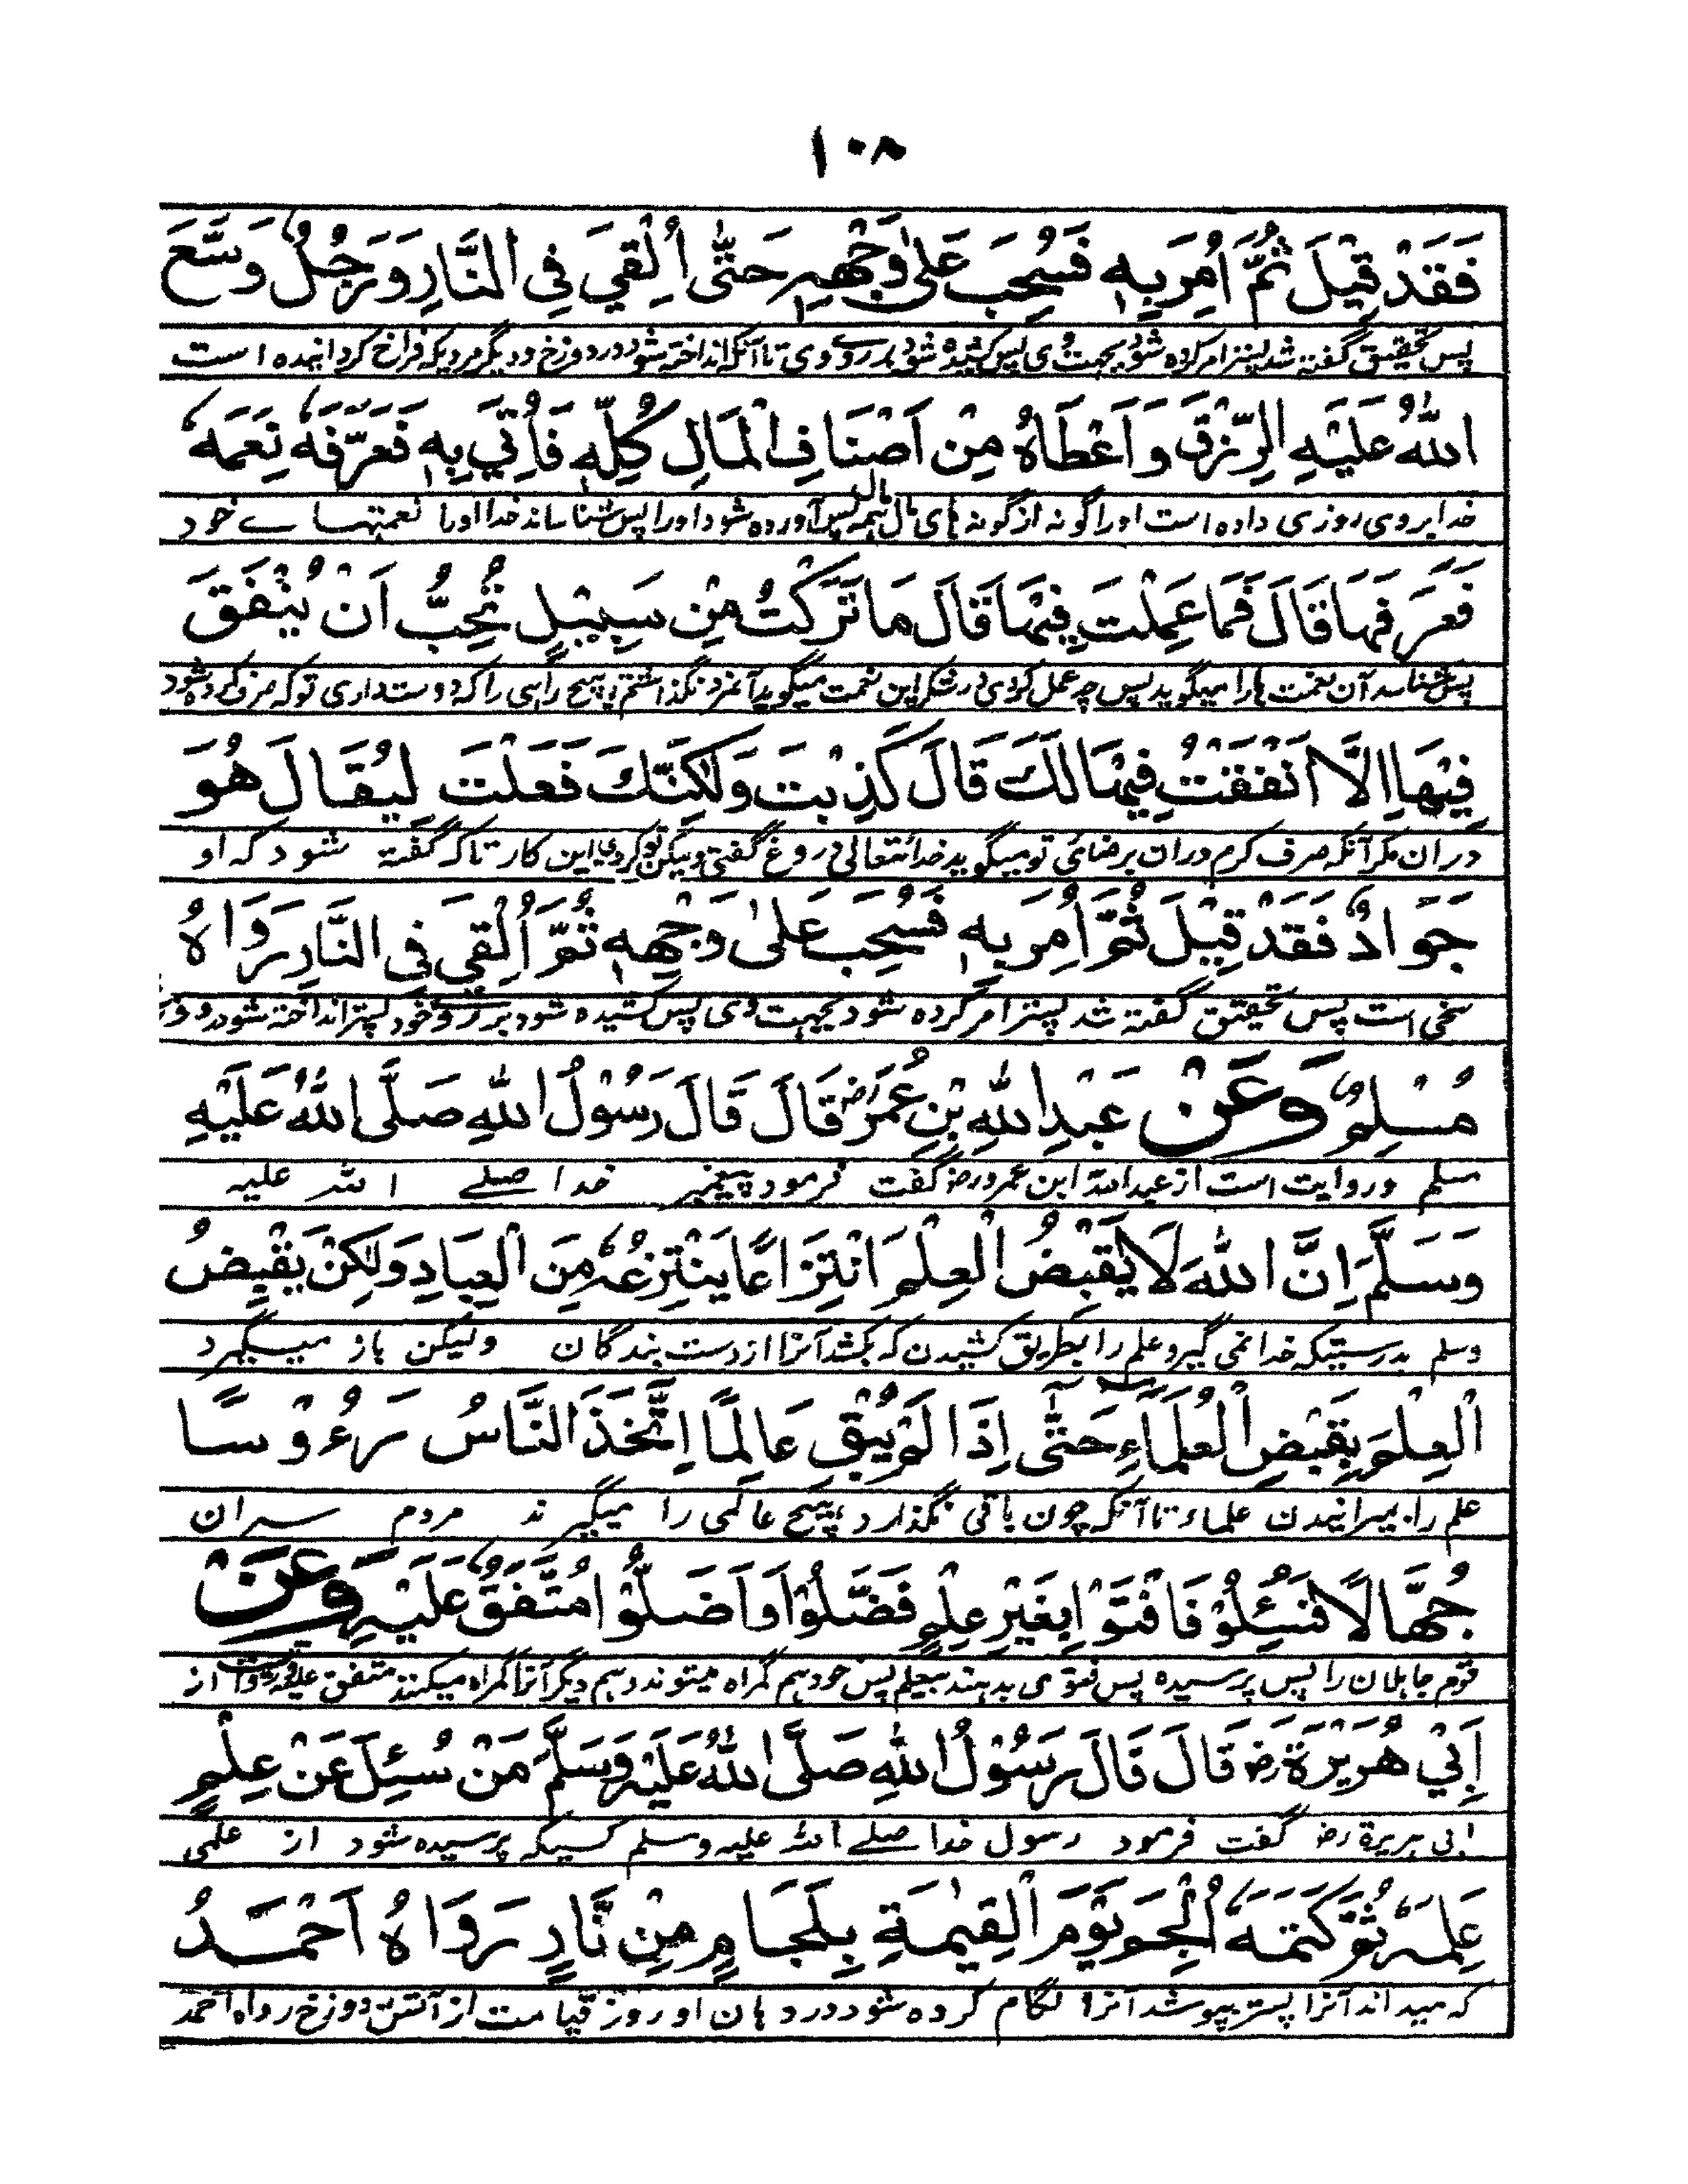 ١٠٨
فَقَدْ قِيْلَ ثُمَّ اُمِرَ بِهٖ فَسُحِبَ عَلٰى وَجْهِهٖ حَتّٰى اُلْقِيَ فِى النَّارِ وَرَجُلٌ وَسَّعَ
پس تحقیق گفته شد پستر امر کرده شود بجهت وی پس کشیده شود بر روے وی تا آنکه انداخته شود در دوزخ و دیگر مردیکه فراخ کردانیده است
اللّٰهُ عَلَيْهِ الرِّزْقَ وَاَعْطَاهُ مِنْ اَصْنَافِ الْمَالِ كُلِّهٖ فَاُتِيَ بِهٖ فَعَرَّفَهٗ نِعَمَهٗ
خدا بر وی روزی داده است او را گونه از گونه های مال همه پس آورده شود او را پس شناساند خدا او را نعمتهاے خود
فَعَرَفَهَا قَالَ فَمَا عَمِلْتَ فِيْهَا قَالَ مَا تَرَكْتُ مِنْ سَبِيْلٍ تُحِبُّ اَنْ يُنْفَقَ
پس شناسد آن نعمت ها را میگوید پس چه عمل کردی در شکر این نعمت میگوید آنمرد نگذاشتم هیچ راهی را که دوست داری تو که صرف کرده شود
فِيْهَا اِلَّا اَنْفَقْتُ فِيْهَا لَكَ قَالَ كَذِبْتَ وَلٰكِنَّكَ فَعَلْتَ لِيُقَالَ هُوَ
در ان مکر آنکه صرف کرم دران برضائی تو میگوید خدائتعالی دروغ گفتی ولیکن تو کردی این کار تا که گفته شود که او
جَوَادٌ فَقَدْ قِيْلَ ثُمَّ اُمِرَ بِهٖ فَسُحِبَ عَلٰى وَجْهِهٖ ثُمَّ اُلْقِيَ فِى النَّارِ رَوَاهُ
سخی است پس تحقیق گفته شد پستر امر کرده شود بجهت وی پس کشیده شود بر روے خود پستر انداخته شود در دوزخ
مُسْلِمٌ وَعَنْ عَبْدِ اللّٰهِ بْنِ عُمَرَ رض قَالَ قَالَ رَسُوْلُ اللّٰهِ صَلَّى اللّٰهُ عَلَيْهِ
مسلم و روایت است از عبد الله ابن عمرو رض گفت فرمود پیغمبر خدا صلے الله علیه
وَسَلَّمَ اِنَّ اللّٰهَ لَا يَقْبِضُ الْعِلْمَ انْتِزَاعًا يَنْتَزِعُهٗ مِنَ الْعِبَادِ وَلٰكِنْ يَقْبِضُ
وسلم بدرستیکه خدا نمی گیرد علم را بطریق کشیدن که بکشد آنرا از دست بندگان ولیکن باز میگیرد
الْعِلْمَ بِقَبْضِ الْعُلَمَاءِ حَتّٰى اِذَا لَمْ يُبْقِ عَالِمًا اِتَّخَذَ النَّاسُ رُءُوْسًا
علم را بمیرانیدن علماء تا آنکه چون باقی نگذارد هیچ عالمی را میگیرند مردم سران
جُهَّالًا فَسُئِلُوْا فَاَفْتَوْا بِغَيْرِ عِلْمٍ فَضَلُّوْا وَاَضَلُّوْا مُتَّفَقٌ عَلَيْهِ وَعَنْ
قوم جاهلان را پس پرسیده پس فتوی بدهند بیعلم پس خود هم گمراه میشوند و هم دیگر آنرا گمراه میکنند متفق علیه و روایت است از
اَبِيْ هُرَيْرَةَ رض قَالَ قَالَ رَسُوْلُ اللّٰهِ صَلَّى اللّٰهُ عَلَيْهِ وَسَلَّمَ مَنْ سُئِلَ عَنْ عِلْمٍ
ابی هریرة رض گفت فرمود رسول خدا صلے الله علیه وسلم کسیکه پرسیده شود از علمی
عَلِمَهٗ ثُمَّ كَتَمَهٗ اُلْجِمَ يَوْمَ الْقِيٰمَةِ بِلِجَامٍ مِنْ نَّارٍ رَوَاهُ اَحْمَدُ
که میداند آنرا پستر بپوشد آنرا لگام کرده شود در دهان او روز قیامت از آتش دوزخ رواه احمد